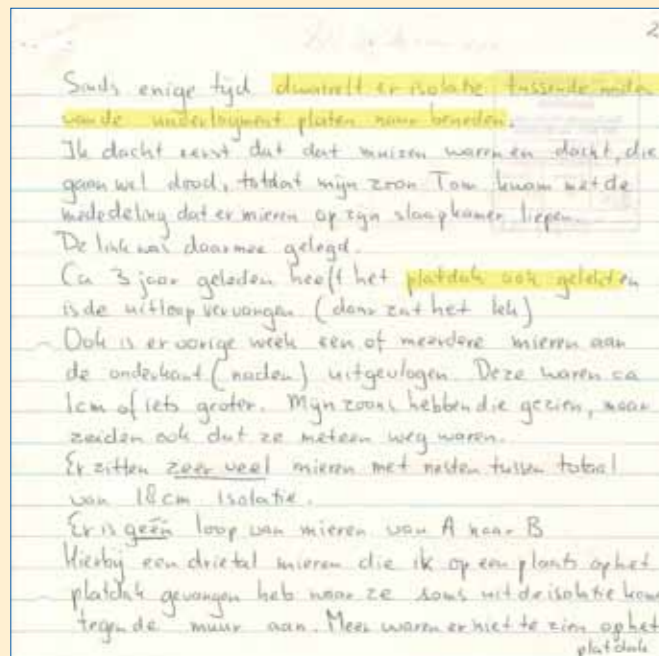 2
Sinds enige tijd dwarrelt er isolatie tussen de naden
van de underlayment platen naar beneden.
Ik dacht eerst dat dat muizen waren en dacht, die
gaan wel dood, totdat mijn zoon Tom kwam met de
mededeling dat er mieren op zijn slaapkamer liepen.
De link was daarmee gelegd.
Ca 3 jaar geleden heeft het platdak ook gelekt en
is de uitloop vervangen (daar zat het lek)
Ook is er vorige week een of meerdere mieren aan
de onderkant (naden) uitgevlogen. Deze waren ca
1cm of iets groter. Mijn zoons hebben die gezien, maar
zeiden ook dat ze meteen weg waren.
Er zitten zeer veel mieren met nesten tussen totaal
van 18cm isolatie.
Er is geen loop van mieren van A naar B
Hierbij een drietal mieren die ik op een plaats op het
platdak gevangen heb waar ze soms uit de isolatie kome
tegen de muur aan. Meer waren er niet te zien op het
platdak